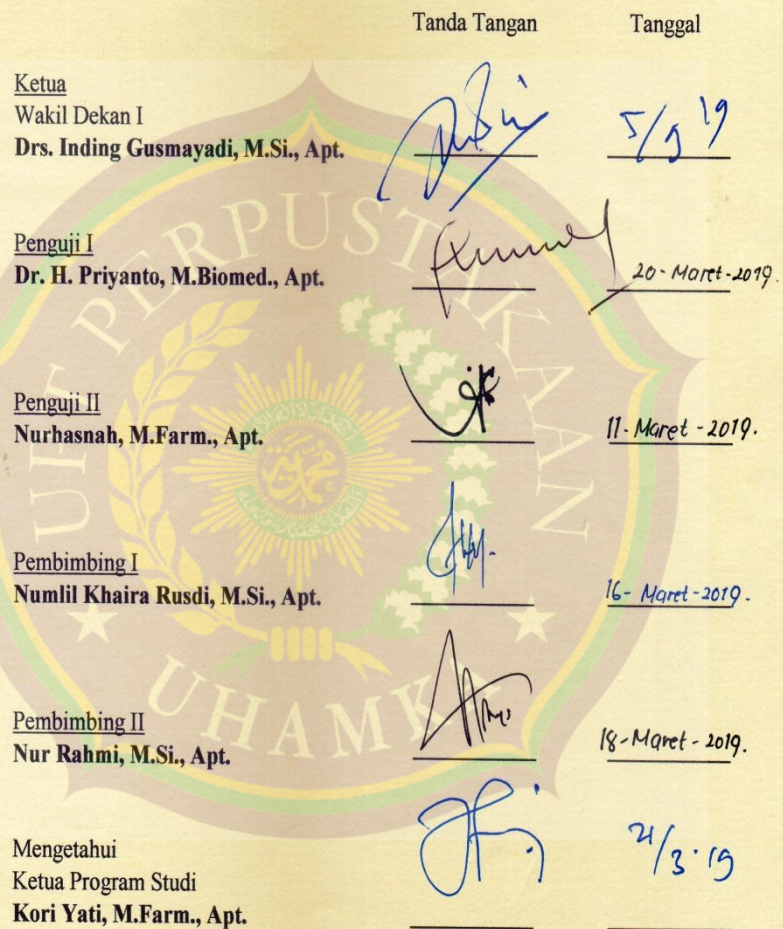 Tanda Tangan Tanggal
Ketua
Wakil Dekan I
Drs. Inding Gusmayadi, M.Si., Apt.
5/9 19
Penguji I
Dr. H. Priyanto, M.Biomed., Apt.
20-Maret-2019.
Penguji II
Nurhasnah, M.Farm., Apt.
11-Maret-2019.
Pembimbing I
Numlil Khaira Rusdi, M.Si., Apt.
16-Maret-2019.
Pembimbing II
Nur Rahmi, M.Si., Apt.
18-Maret-2019.
Mengetahui
Ketua Program Studi
Kori Yati, M.Farm., Apt.
21/3.19
UPT PERPUSTAKAAN
UHAMKA